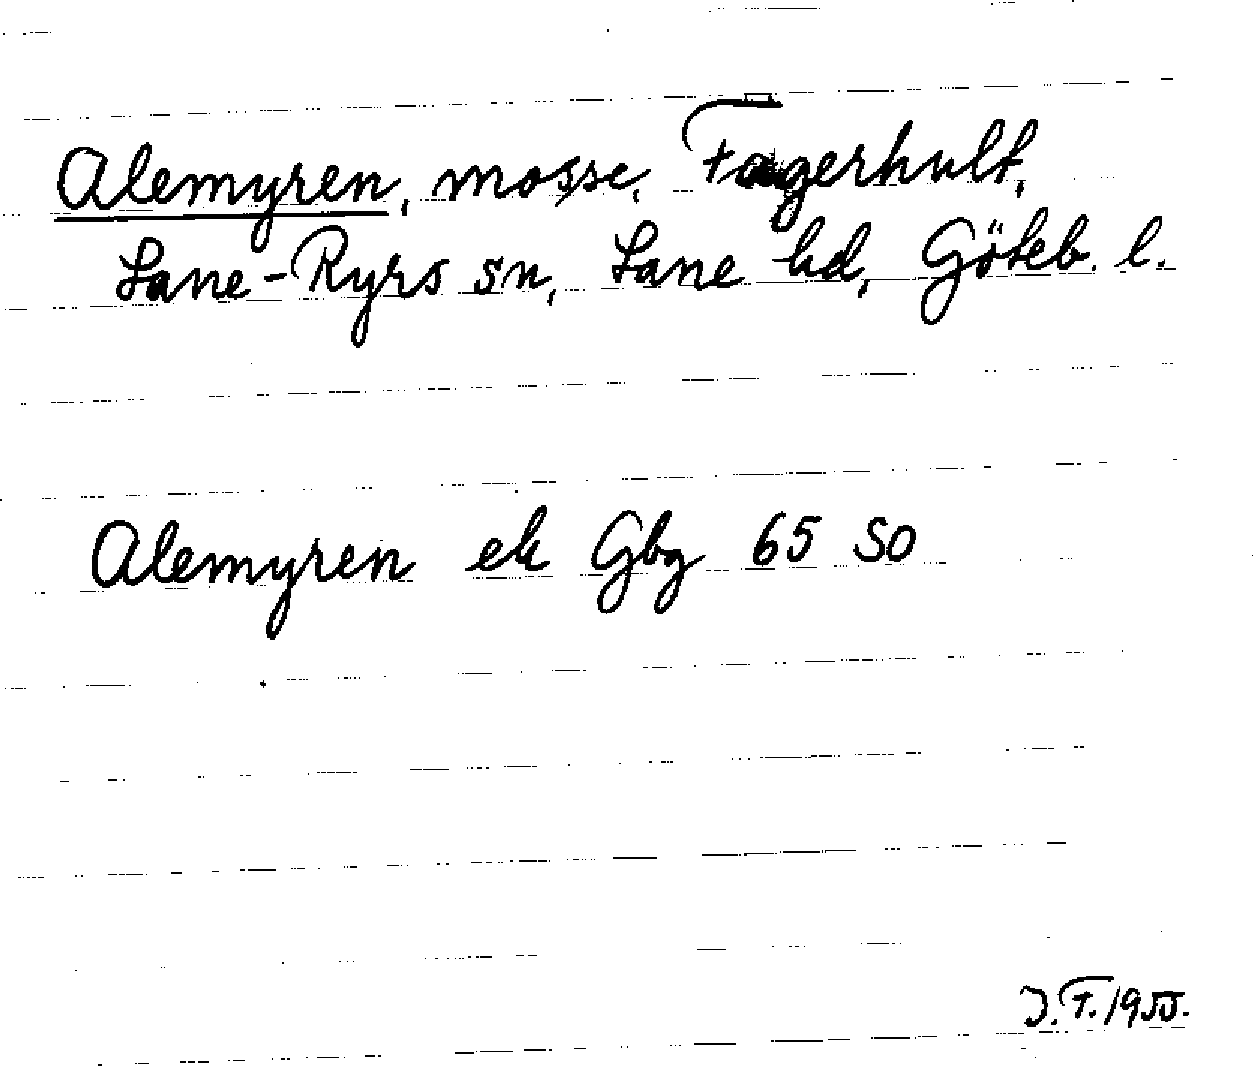 Alemyren, mosse, Fagerhult,
Lane-Ryrs sn, Lane hd, Göteb. l.
Alemyren ek Gbg 65 SO
J.F. 1955.